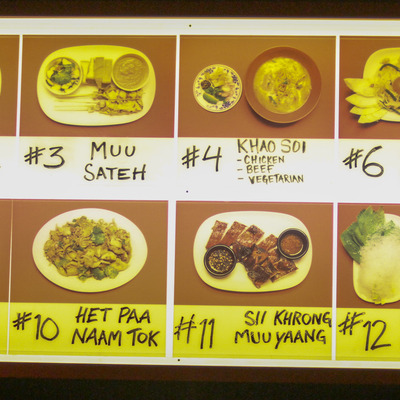 #3 MUU
SATEH
#4 KHAO SOI
- CHICKEN
- BEEF
- VEGETARIAN
#6
#10 HET PAA
NAAM TOK
#11 SII KHRONG
MUU YAANG
#12